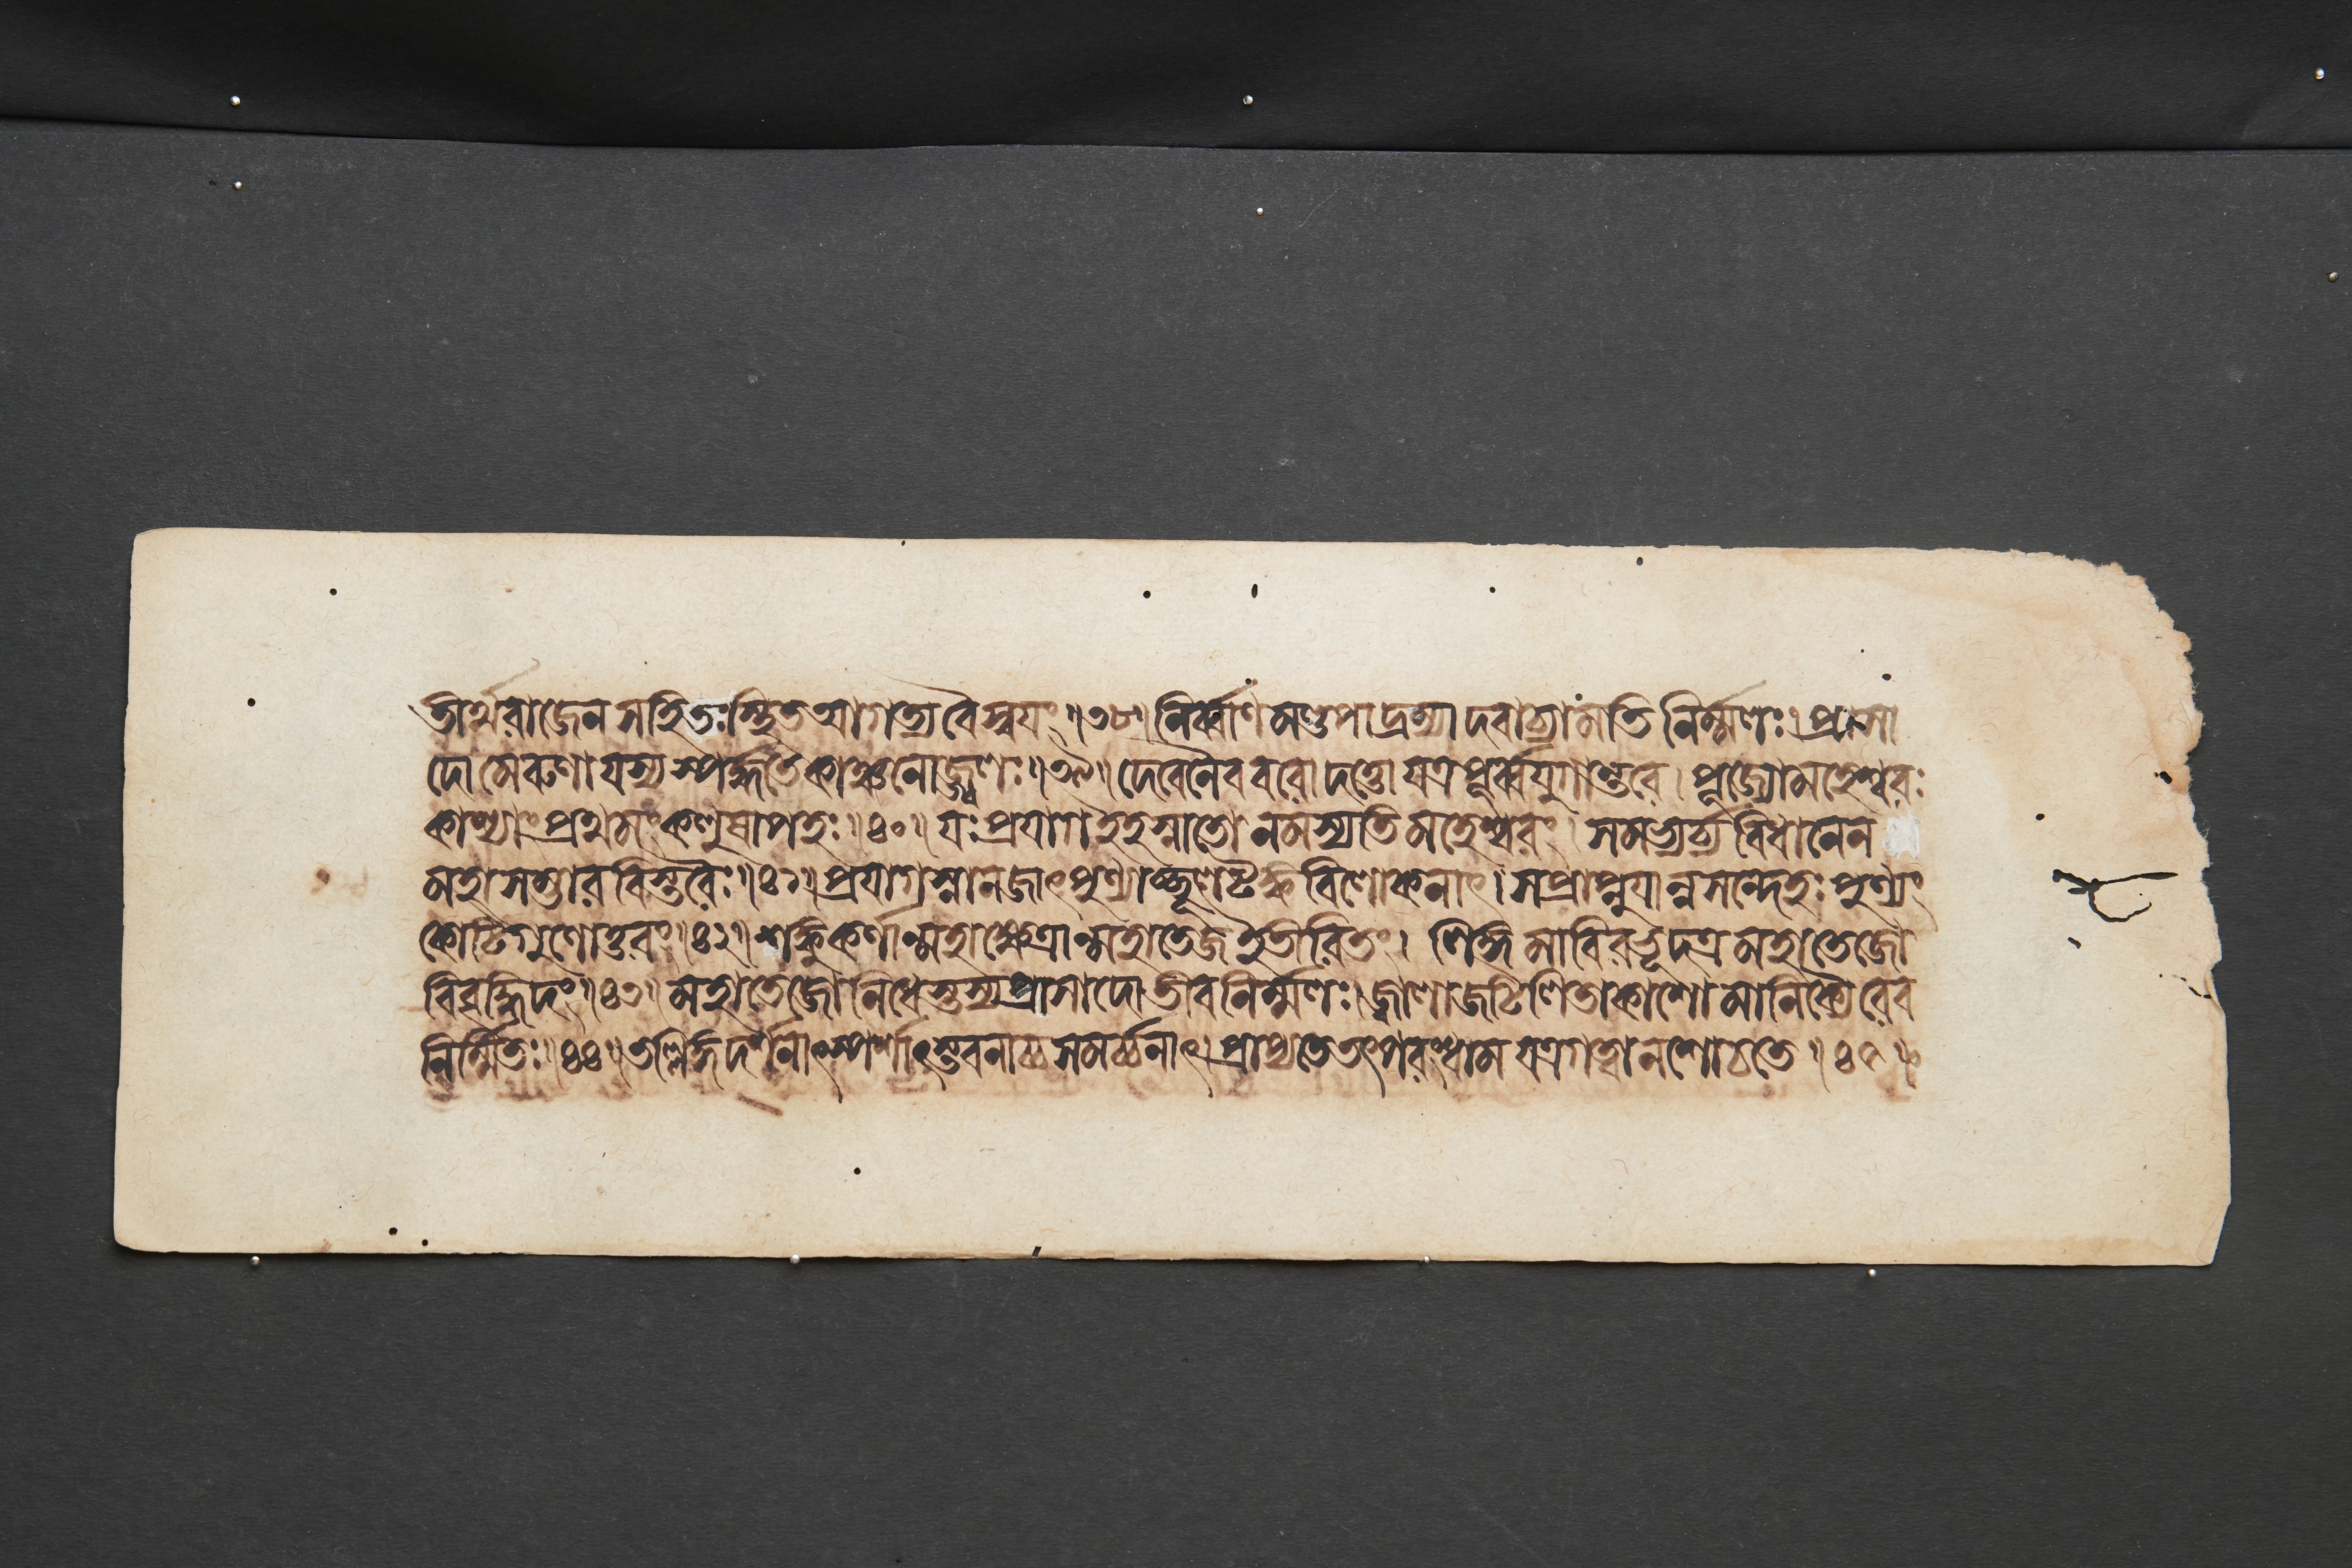 তীর্থরাজেন সহিতঃ স্থিত আগত্য বৈ স্বয়ং ॥ ৩৮ ॥ নির্ব্বাণমণ্ডপাদ্রম্যাদবাচ্যামতিনির্ম্মলঃ । প্রাসা
দো মেরুণা যস্য স্পর্দ্ধতে কাঞ্চনোজ্জ্বলঃ ॥ ৩৯ ॥ দেবেনৈব বরো দত্তো যত্র পূর্ব্বযুগান্তরে । পূজ্যো মহেশ্বরঃ
কাশ্যাং প্রথমং কলুষাপহঃ ॥ ৪০ ॥ যঃ প্রয়াগ ইহ স্নাতো নমস্যতি মহেশ্বরং । সমভ্যর্চ্য বিধানেন
মহাসম্ভারবিস্তরৈঃ ॥ ৪১ ॥ প্রয়াগস্নানজাৎ পুণ্যাচ্ছূলটঙ্কবিলোকনাৎ । স প্রাপ্নুয়ান্ন সন্দেহঃ পুণ্যং
কোটিগুণোত্তরং ॥ ৪২ ॥ শঙ্কুকর্ণান্মহাক্ষেত্রান্মহাতেজ ইতীরিতং । লিঙ্গমাবিরভূদত্র মহাতেজো
বিবৃদ্ধিদং ॥ ৪৩ ॥ মহাতেজোনিধেস্তস্য প্রাসাদোতীবনির্ম্মলঃ । জ্বালাজটিলিতাকাশো মানিক্যৈরেব
নির্ম্মিতঃ ॥ ৪৪ ॥ তল্লিঙ্গদর্শনাৎ স্পর্শাৎ স্তবনাচ্চ সমর্চ্চনাৎ । প্রাপ্যতে তৎপরং ধাম যত্র গত্বা ন শোচতে ॥ ৪৫ ॥